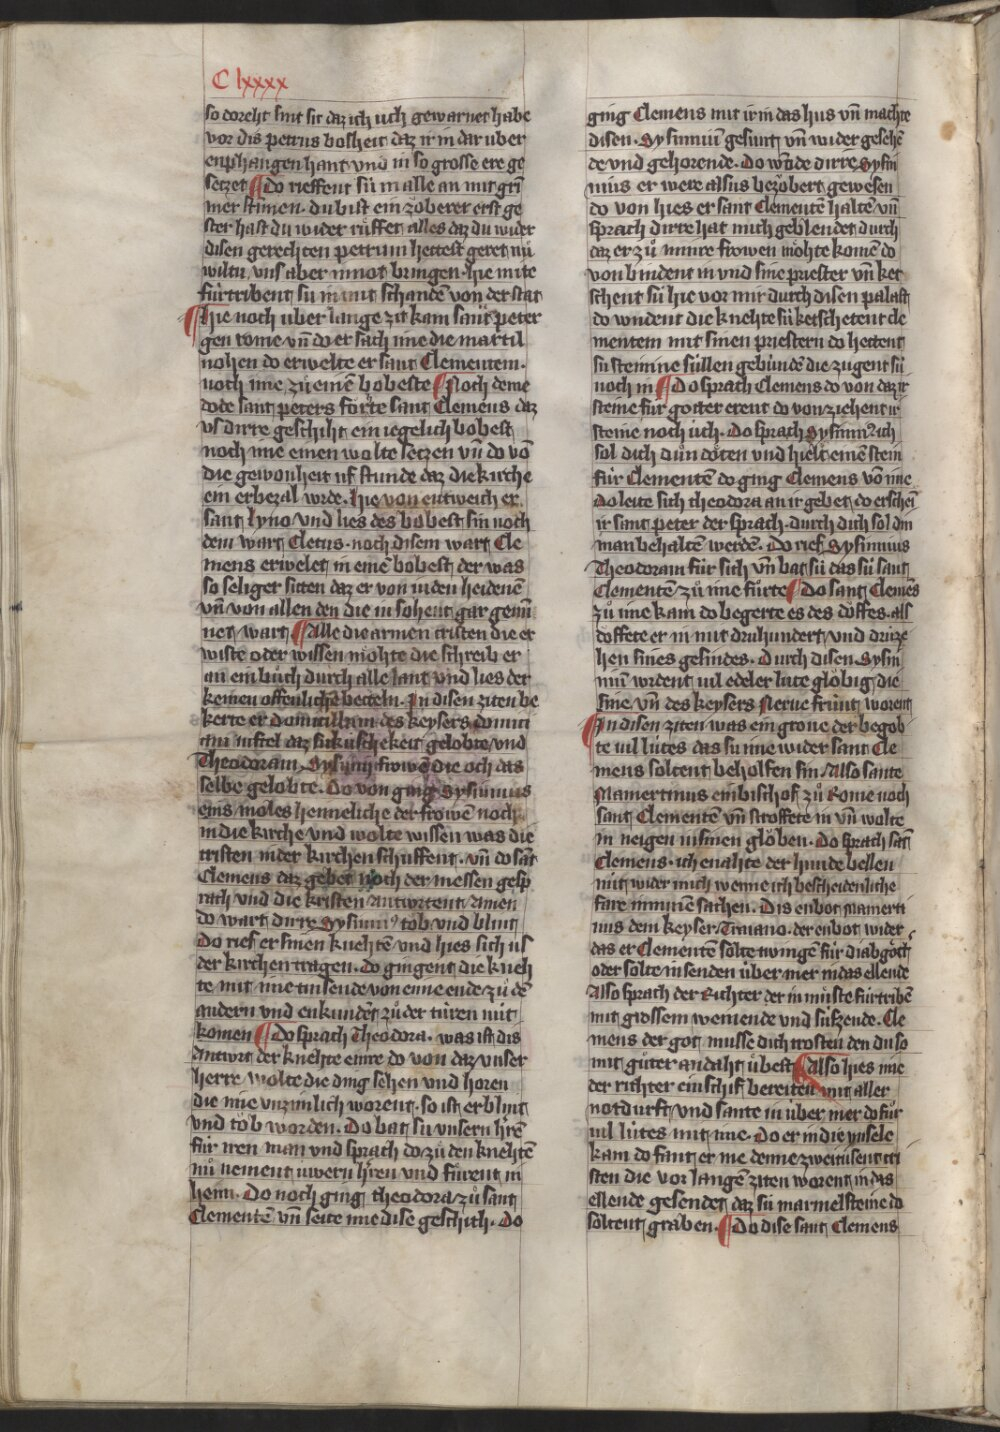 C lxxxx
so dorcht sint sit daz ich uch gewarnet habe
vor dis petrus bosheit daz ir in dar uber
enphangen hant vnd in so grosse ere ge
setzet ¶ Do rieffent sü in alle an mit grī
mer stimen. du bist ein zöberer erst ge
ster hast du wider rüffet alles daz du wider
disen gerechten petrum hettest geret nů
wiltu vns aber in not bringen. hie mitte
fürtribent sü in mit schanden von der stat
¶ hie noch uber lange zit kam sant peter
gen rome vn̄ do er sach ime die martil
nohen do erwelte er sant Clementem.
noch ime zü einē bobeste ¶ Noch deme
dode sant peters forhte sant Clemens daz
vs dirre geschiht ein iegelich bobest
noch ime einen wolte setzen vn̄ do vō
die gewonheit uf stunde daz die kirche
ein erbezal wrde. hie von entweich er
sant lyno vnd lies des bobest sin noch
dem wart Cletus. noch disem wart Cle
mens erwelet in einē bobest der was
so seliger sitten daz er von iuden heidenē
vn̄ von allen den die in sohent gar gemī
net wart ¶ Alle die armen cristen die er
wiste oder wissen mohte die schreib er
an ein bůch durch alle lant vnd lies der
keinen offenlichē betteln. In disen ziten be
kerte er domicillam des keysers domici
ani niftel daz sü küschekeit gelobte vnd
Theodoram Sysinii frowē die och das
selbe gelobte. Do von ging Sysinnius
eins moles heimeliche der frowen noch
in die kirche vnd wolte wissen was die
cristen in der kirchen schüffent. vn̄ do sāt
Clemens daz gebet noch der messen gesp
rach vnd die kristen antwrtent amen
do wart dirre Sysinni9 tob vnd blint
Do rief er sinen knehtē vnd hies sich us
der kirchen tragen. do gingent die kneh
te mit ime tusende von eime ende zü dē
andern vnd enkundēt zů der türen nüt
komen ¶ Do sprach Theodora. was ist dis
antwrt der knehte eine do von daz vnser
herre wolte die ding sehen vnd horen
die ime vnzimlich worent. so ist er blint
vnd tob worden. Do bat sü vnsern hrē
für iren man vnd sprach do zü den knehtē
nů nement uwern hrēn vnd fürent in
heim. Do noch ging theodora zů sant
Clementē vn̄ seite ime dise geschiht. Do
ging Clemens mit ir in das hus vn̄ machte
disen. Sysinniū gesunt vn̄ wider gesehē
de vnd gehorende. Do wōde dirre Sysin
nius er were alsus bezöbert gewesen
do von hies er sant Clementē haltē vn̄
sprach dirre hat mich geblendet durch
daz er zů minre frowen mohte komē do
von bindent in vnd sine priester vn̄ ket
schent sü hie vor mir durch disen palast
do wndent die knehte sü ketschetent cle
mentem mit sinen priestern do hettent
sü steinine süllen gebundē die zugent sü
noch in ¶ Do sprach Clemens do von daz ir
steine für götter erent do von ziehent ir
steine noch üch. Do sprach Sysinni9 ich
sol dich dün döten vnd hielt einē stein
für Clementē do ging Clemens vō ime
Do leite sich theodora an ir gebet do erschēī
ir sant peter der sprach. durch dich sol din
man behaltē werdē. Do rief Sysinnius
Theodoram für sich vn̄ bat sü das sü sant
Clementē zů ime fürte ¶ Do sant Clemēs
zů ime kam do begerte es des döffes. als
doffete er in mit drühundert vnd drüze
hen sines gesindes. Durch disen Sysin
niū wrdent uil edeler lüte glöbig die
sine vn̄ des keysers Nerue frünt worent
¶ In disen ziten was ein grove der begob
te uil lütes das sü ime wider sant Cle
mens soltent beholfen sin. Also sante
Mamertinus ein bischof zů Rome noch
sant Clementē vn̄ stroffete in vn̄ wolte
in neigen in sinen glöben. Do sprach sāt
Clemens. ich enahte der hunde bellen
nüt wider mich wenne ich bescheidenliche
fare in minē sachen. Dis enbot Mamerti
nus dem keyser Traiano. der enbot wider
das er Clementē solte twingē für diabgött
oder solte in senden über mer in das ellende
Also sprach der Richter der in müste fürtribē
mit grossem weinende vnd süfzende. Cle
mens der got musse dich trosten den du so
mit güter andaht übest ¶ Also hies ime
der richter ein schif bereiten mit aller
notdurft vnd sante in über mer do für
uil lütes mit ime. Do er in die ynsele
kam do fant er me denne zweitusent cri
sten die vor langē ziten worent in das
ellende gesendet daz sü marmelsteine do
soltent graben. ¶ Do dise sant Clemens